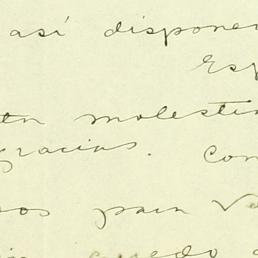 así dispone
Esp
molesti
gracias. Con
para
quedo